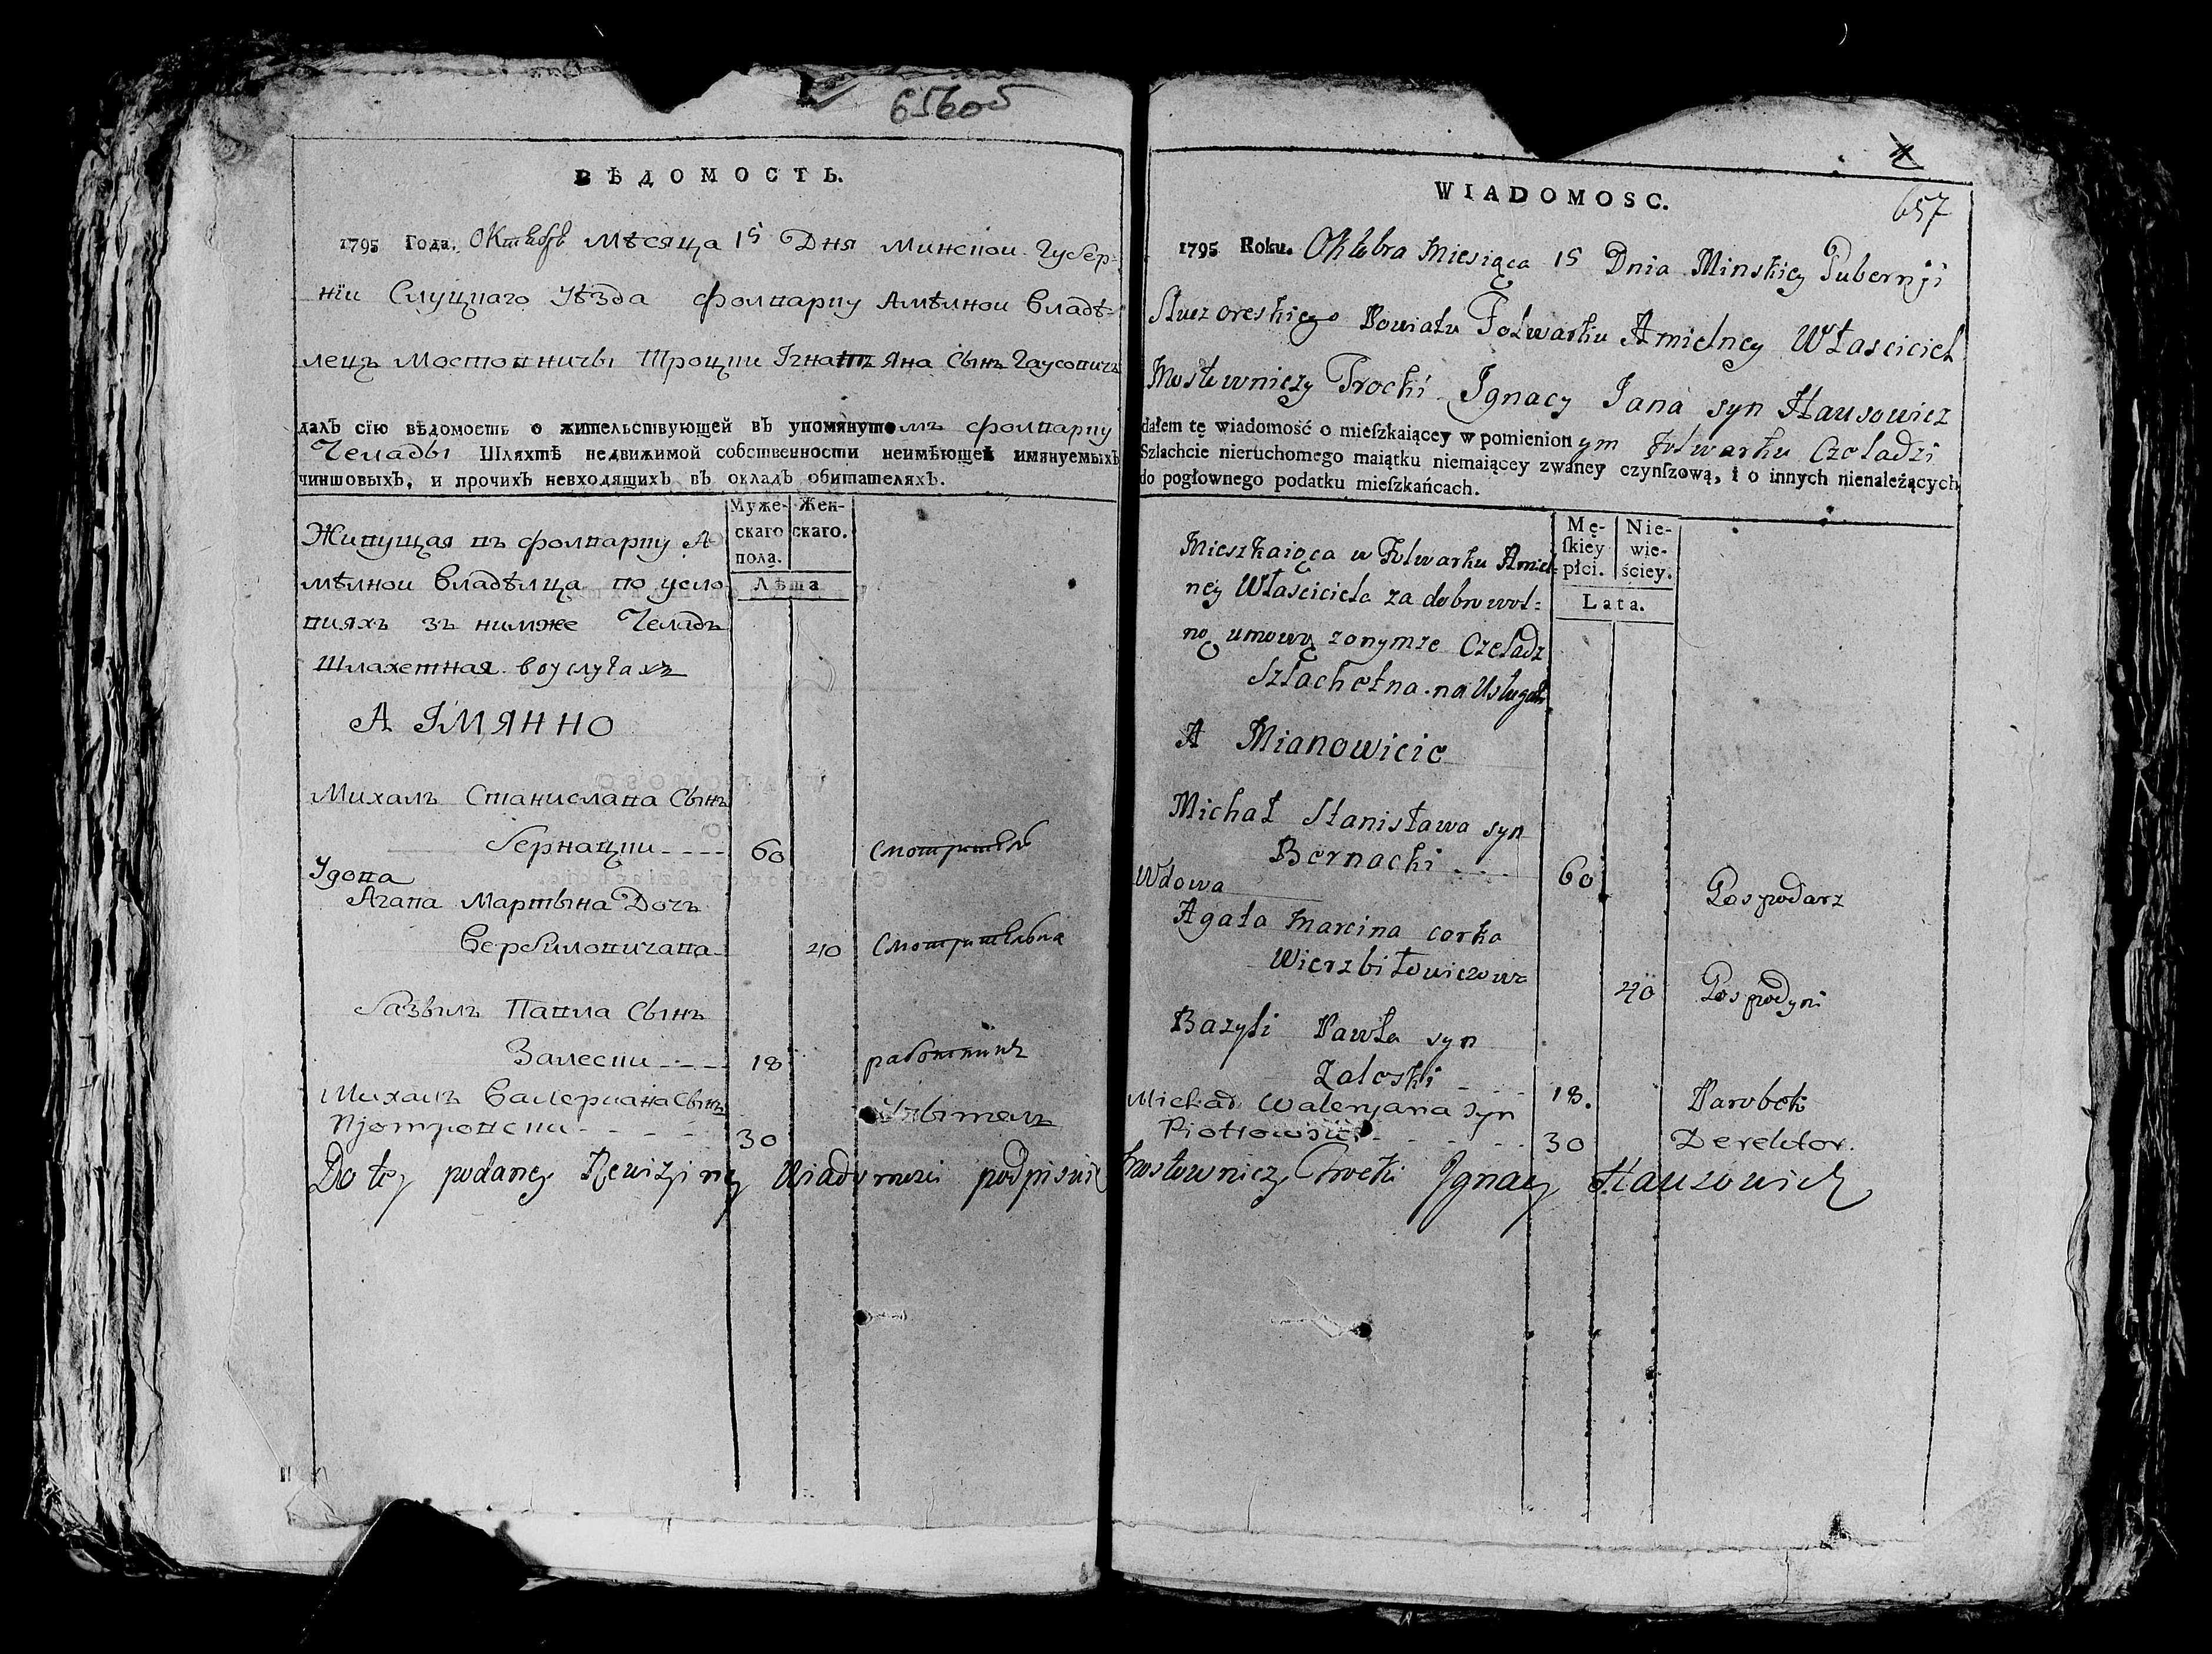 656об
ВѢДОМОСТЬ.
1795 Года. Октября Мѣсяца 15 Дня Минской Губер-
нїи Слуцкаго Уѣзда фолварку Амѣлной Владѣ-
лецъ Мостовничы Троцки Iгнатъ Яна Сынъ Гаусовичъ
далъ сїю вѣдомость о жительствующей въ упомянутомъ фолварку
Челады Шляхтѣ недвижимой собственности неимѣющей имянуемыхъ
чиншовыхъ, и прочихъ невходящихъ въ окладъ обитателяхъ.
Муже-скаго пола. Жен-скаго.
Лѣта
Живущая въ фолварку А
мѣлной Владѣлца по усло
вияхъ зъ нимже Челадъ
Шлахетная воуслугахъ
А IМЯННО
Михалъ Станислава Сынъ
Бернацки 60 смотритель
Удова
Агапа Мартына Дочъ
Вербиловичава 40 смотрительна
Базылъ Павла Сынъ
Залески 18 работникъ
Михалъ Валериана Сынъ
Пјотровски 30 Учытель
Do tey podaney Rewizjiney Wiadomosci podpisuie
4
657
WIADOMOSC.
1795 Roku. Oktobra Miesiąca 15 Dnia Minskiey Gubernji
Słuzoreskiego Powiatu Folwarku Amielney Właściciel
Mostowniczy Trocki Ignacy Jana syn Hausowicz
dałem tę wiadomość o mieſzkaiącey w pomienionym folwarku Czeladzi
Szlachcie nieruchomego maiątku niemaiącey zwaney czynſzową, i o innych nienależących
do pogłownego podatku mieſzkańcach.
Mę-ſkiey płci. Nie-wie-ściey.
Lata.
Mieszkaiąca w Folwarku Amiel
ney Właściciela za dobrowol-
ną umową zonymze Czeladz
Szlachetna na Usługah
A Mianowicie
Michał Stanisława syn
Bernacki 60 Gospodarz
Wdowa
Agata Marcina corka
Wierzbiłowiczowa 40 Gospodyni
Bazyli Pawła syn
Zaleski 18. Parobek
Michał Waleryana syn
Piotrowski 30 Derektor.
Mostowniczy Trocki Ignacy Hausowicz